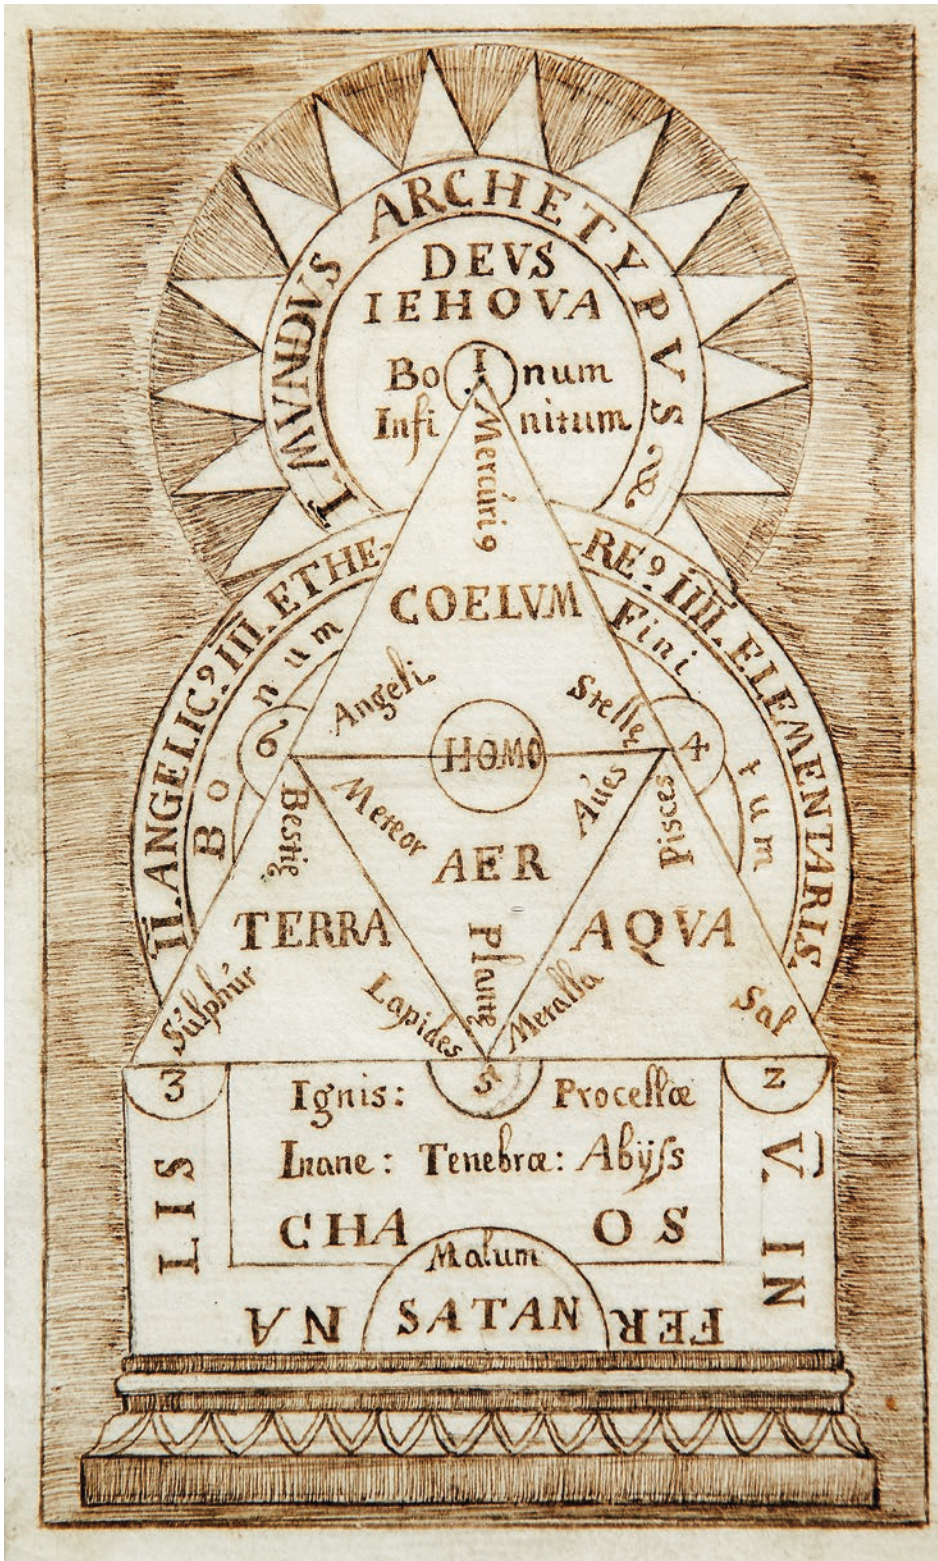 I. MVNDVS ARCHETYPVS &
DEVS
IEHOVA
I
Bo num
Infi nitum
Mercuri9
II. ANGELIC9. III. ETHE-
-RE9. IIII. ELEMENTARIS
Bo n u m
Fini t u m
COELVM
Angeli
Stellę
6
HOMO
4
Bestię
Meteor
Aues
Pisces
AER
TERRA
AQVA
Plantę
Sulphur
Lapides
Metalla
Sal
3
5
2
Ignis: Procellæ
Inane: Tenebræ: Abyss
CHA OS
V. IN
FER
NA
LIS
Malum
SATAN